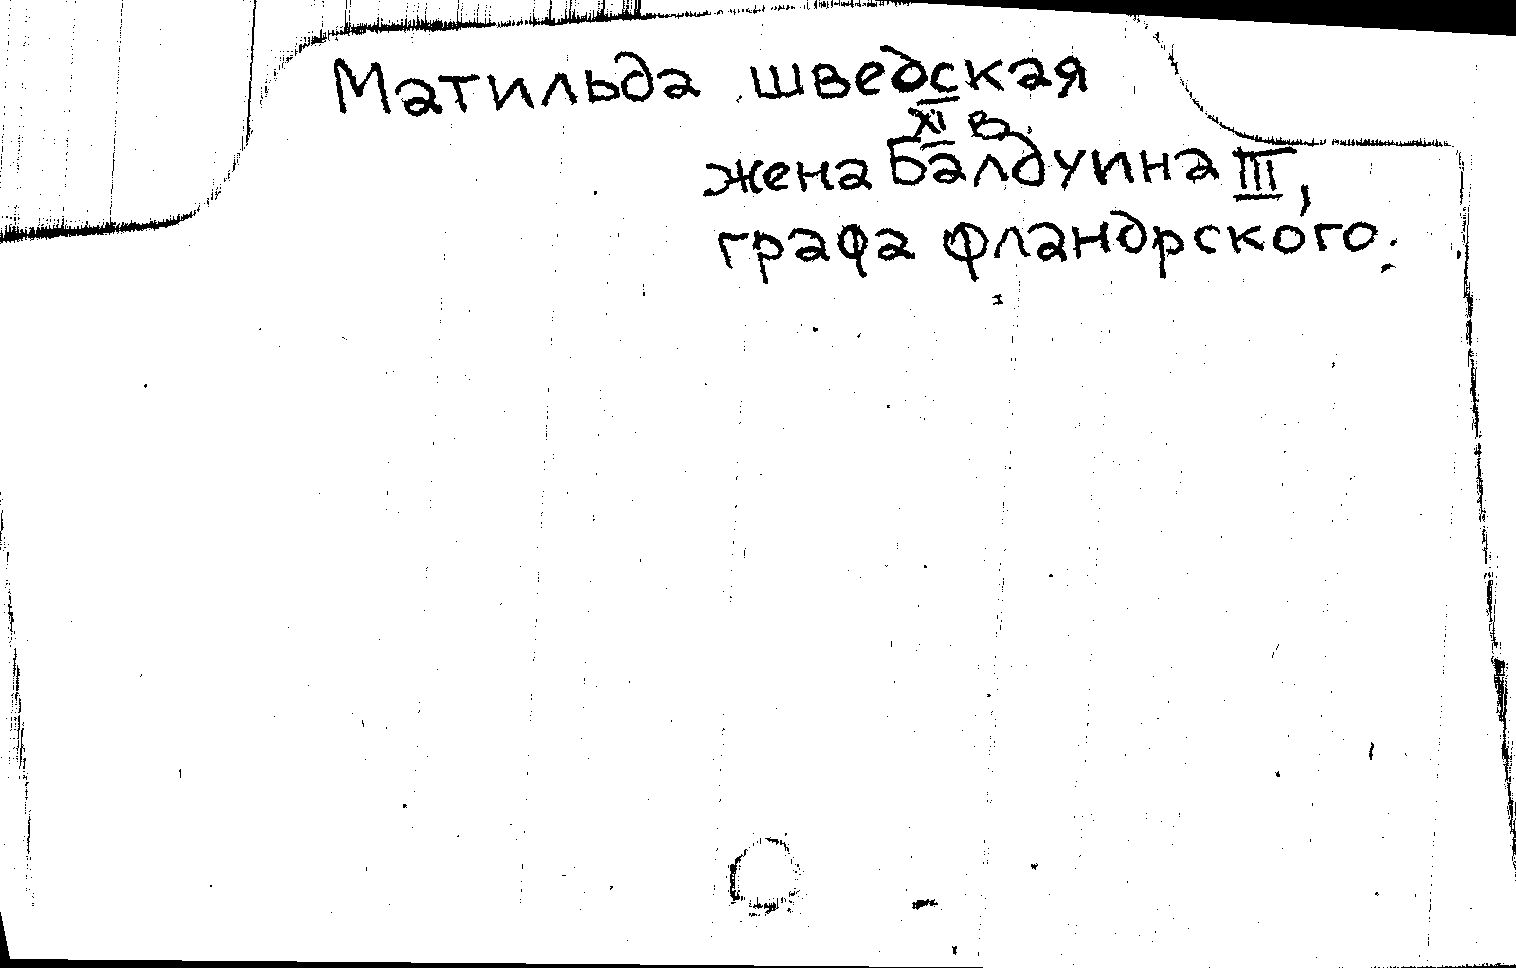 Матильда шведская
XI в.
жена Балдуина III,
графа фландрского.